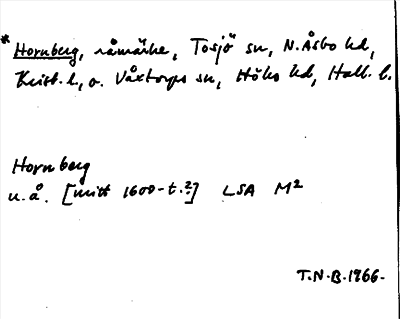 * Hornberg, råmärke, Tosjö sn, N. Åsbo hd,
Krist. l., o. Våxtorps sn, Höks hd, Hall. l.
Hornberg
u.å. [mitt 1600-t.?] LSA M²
T.N.B. 1966.